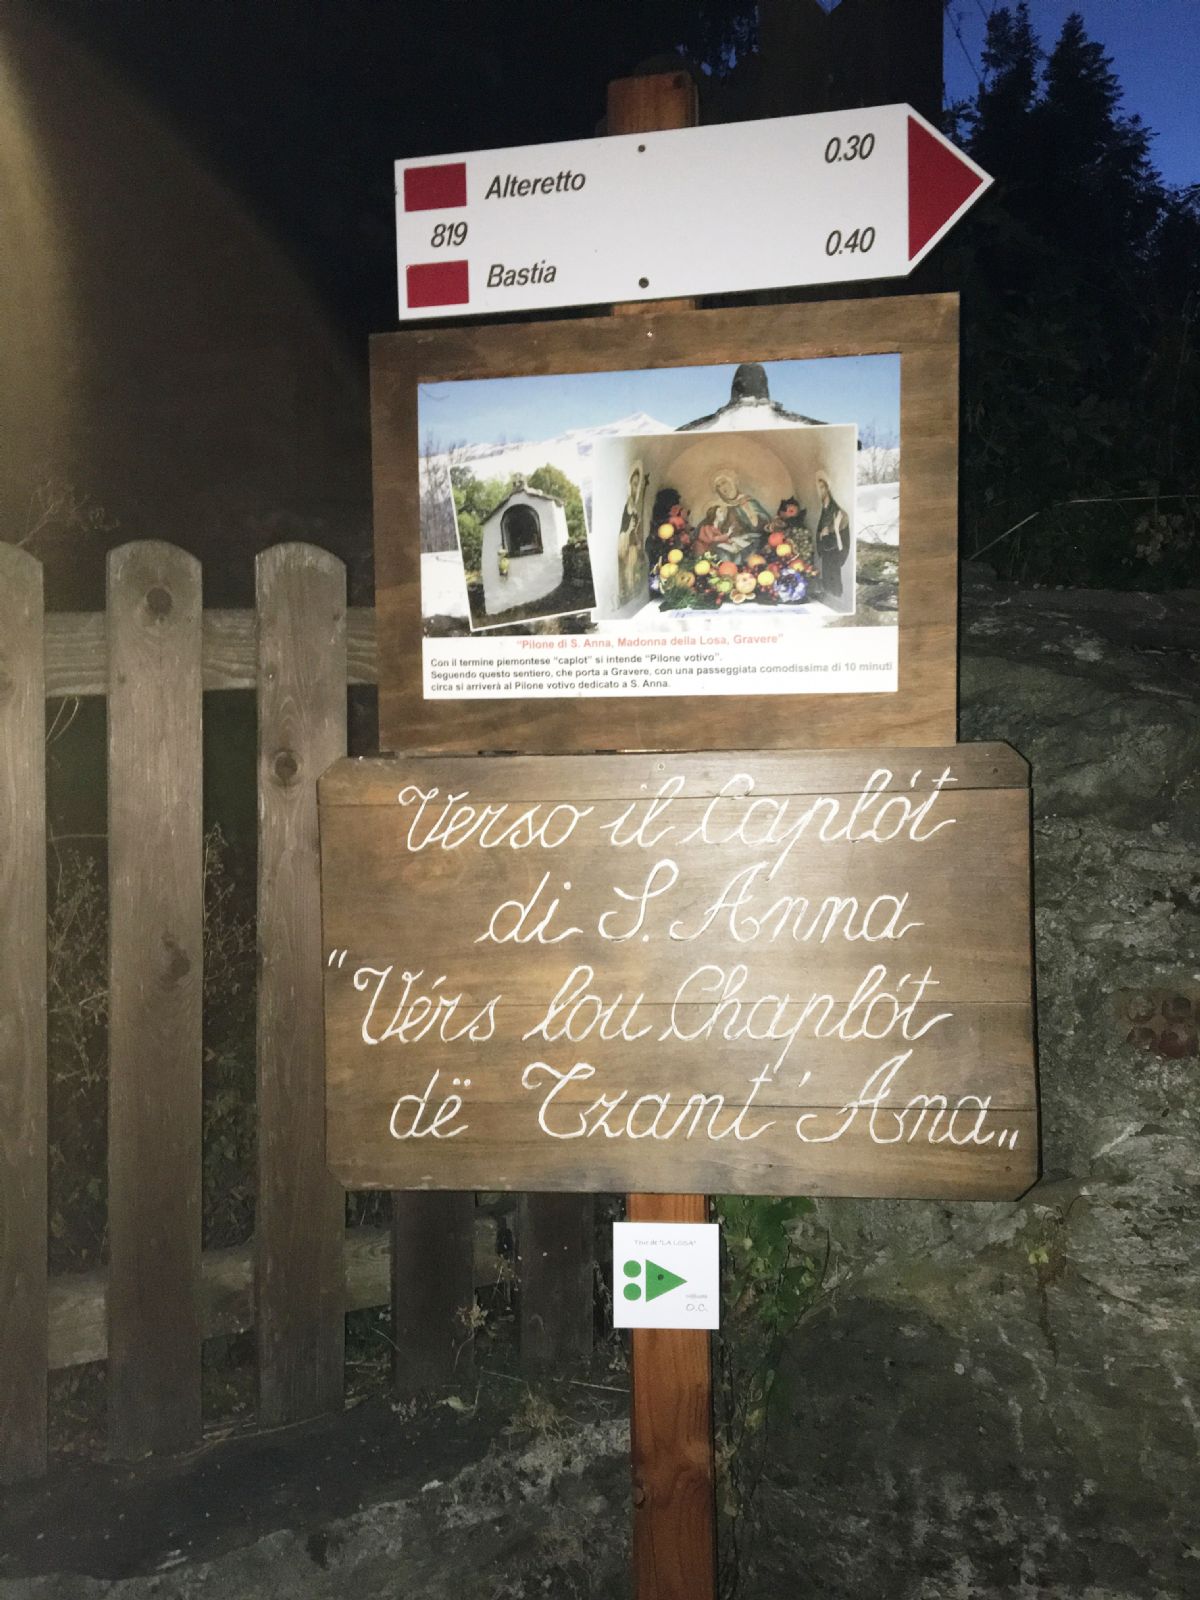 Alteretto 0.30
819
Bastia 0.40
"Pilone di S. Anna, Madonna della Losa, Gravere"
Con il termine piemontese "caplot" si intende "Pilone votivo".
Seguendo questo sentiero, che porta a Gravere, con una passeggiata comodissima di 10 minuti
circa si arriverà al Pilone votivo dedicato a S. Anna.
Verso il Caplót
di S. Anna
"Vérs lou Chaplót
dë Tzant' Ana"
Tour de "LA LOSA"
O.C.